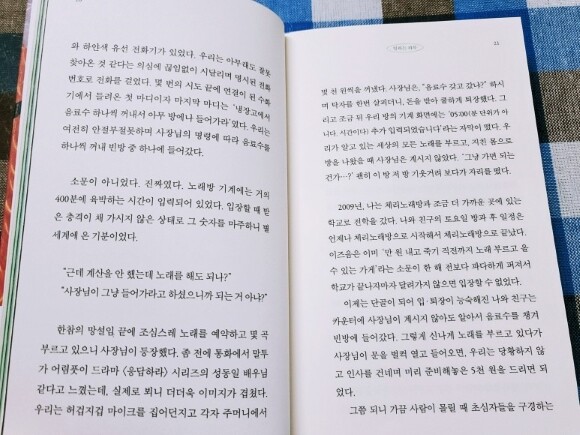 와 하얀색 유선 전화기가 있었다. 우리는 아무래도 잘못
찾아온 것 같다는 의심에 끊임없이 시달리며 명시된 전화
번호로 전화를 걸었다. 몇 번의 시도 끝에 연결이 된 수화
기에서 들려온 첫 마디이자 마지막 마디는 '냉장고에서
음료수 하나씩 꺼내서 아무 방에나 들어가라'였다. 우리는
여전히 안절부절못하며 사장님의 명령에 따라 음료수를
하나씩 꺼내 빈방 중 하나에 들어갔다.
소문이 아니었다. 진짜였다. 노래방 기계에는 거의
400분에 육박하는 시간이 입력되어 있었다. 입장할 때 받
은 충격이 채 가시지 않은 상태로 그 숫자를 마주하니 별
세계에 온 기분이었다.
"근데 계산을 안 했는데 노래를 해도 되나?"
"사장님이 그냥 들어가라고 하셨으니까 되는 거 아냐?"
한참의 망설임 끝에 조심스레 노래를 예약하고 몇 곡
부르고 있으니 사장님이 등장했다. 좀 전에 통화에서 말투
가 어렴풋이 드라마 〈응답하라〉 시리즈의 성동일 배우님
같다고 느꼈는데, 실제로 뵈니 더더욱 이미지가 겹쳤다.
우리는 허겁지겁 마이크를 집어던지고 각자 주머니에서
23
몇 천 원씩을 꺼냈다. 사장님은, "음료수 갖고 갔나?" 하시
며 탁자를 한번 살피더니, 돈을 받아 쿨하게 퇴장했다. 그
리고 조금 뒤 우리 방의 기계 화면에는 '05:00(분 단위가 아
닙니다. 시간이다) 추가 입력되었습니다'라는 자막이 떴다. 우
리가 알고 있는 세상의 모든 노래를 부르고, 지친 몸으로
방을 나왔을 때 사장님은 계시지 않았다. '그냥 가면 되는
건가…?' 괜히 이 방 저 방 기웃거려 보다가 자리를 떴다.
2009년, 나는 체리노래방과 조금 더 가까운 곳에 있는
학교로 전학을 갔다. 나와 친구의 토요일 방과 후 일정은
언제나 체리노래방으로 시작해서 체리노래방으로 끝났다.
이즈음은 이미 '만 원 내고 죽기 직전까지 노래 부르고 올
수 있는 가게'라는 소문이 한 해 전보다 파다하게 퍼져서
학교가 끝나자마자 달려가지 않으면 입장할 수 없었다.
이제는 단골이 되어 입·퇴장이 능숙해진 나와 친구는
카운터에 사장님이 계시지 않아도 알아서 음료수를 챙겨
빈방에 들어갔다. 그렇게 신나게 노래를 부르고 있다가
사장님이 문을 벌컥 열고 들어오면, 우리는 당황하지 않
고 인사를 건네며 미리 준비해놓은 5천 원을 드리면 되
었다.
그쯤 되니 가끔 사람이 몰릴 때 초심자들을 구경하는